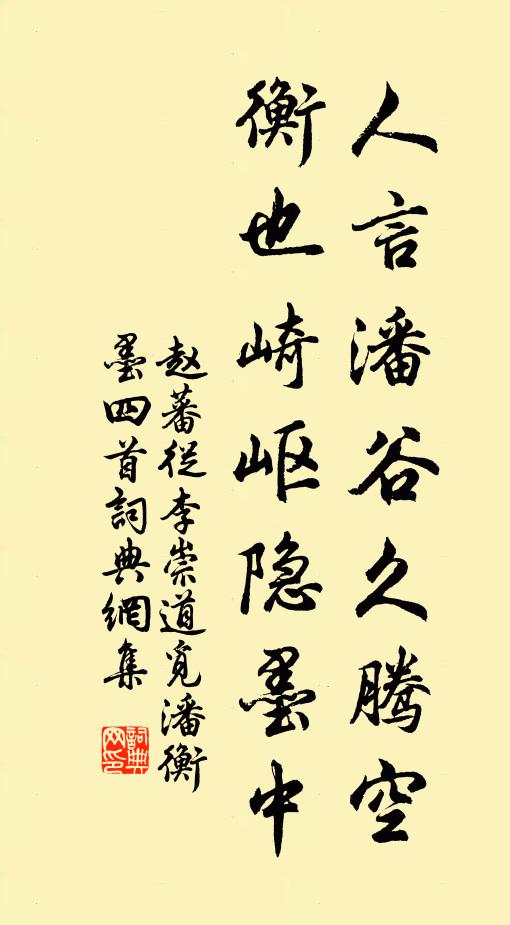 人言潘谷久腾空
衡也崎岖隐墨中
赵蕃從李崇道觅潘衡
墨四首詞典網集
詞典
网印